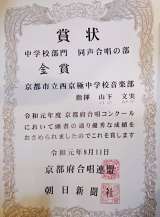 賞状
中学校部門 同声合唱の部
金賞
京都市立西京極中学校音楽部
指揮 山下 文実
令和元年度 京都府合唱コンクール
において頭書の通り優秀な成績を
おさめられましたのでこれを賞します
令和元年8月11日
京都府合唱連盟
朝日新聞社